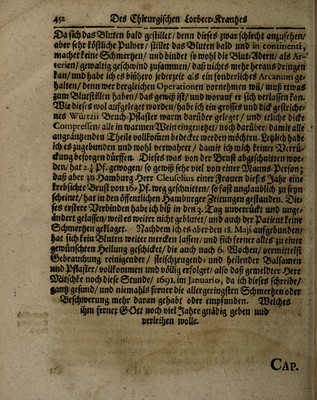 452 Des Chirurgischen Lorbeer-Krantzes
Da sich das Bluten bald gestillet/ denn dieses zwar schlecht anzusehen/
aber sehr köstliche Pulver/ stillet das Bluten bald und in continenti,
machet keine Schmertzen/ und bindet so wohl die Blut-Adern/ als Ar-
terien/ gewaltig geschwind zusammen/ daß nichts mehr heraus dringen
kan/ und habe ich es bißhero jederzeit als ein sonderliches Arcanum ge-
halten/ denn wer dergleichen Operationen vornehmen wil/ muß etwas
zum Blutstillen haben/ das gewiß ist/ und worauf er sich verlassen kan.
Wie dieses wol aufgeleget worden/ habe ich ein grosses und dick gestriche-
nes Würtzii Bruch-Pflaster warm darüber geleget/ und etliche dicke
Compressen/ alle in warmen Wein eingeweichet/ noch darüber/ damit alle
angräntzenden Theile vollkommen bedecket werden möchten. Letzlich habe
ich es zugebunden und wohl verwahret/ damit ich mich keiner Verrü-
ckung besorgen dürffen. Dieses was von der Brust abgeschnitten wor-
den/ hat Pf. gewogen/ so gewiß sehr viel von einer Manns-Person;
daß aber zu Hamburg Herr Cleuselius einer Frauen dieses Jahr eine
krebsichte Brust von 16. Pf. weg geschnitten/ so fast unglaublich zu seyn
scheinet/ hat in den öffentlichen Hamburger Zeitungen gestanden. Die-
ses erstere Verbinden habe ich biß in den 3. Tag unverrückt und unge-
ändert gelassen/ weil es weiter nicht geblutet/ und auch der Patient keine
Schmertzen geklaget. Nachdem ich es aber den 18. Maji aufgebunden/
hat sich kein Bluten weiter mercken lassen/ und sich ferner alles zu einer
gewünschten Heilung geschicket/ die auch nach 6. Wochen/ vermittelst
Gebrauchung reinigender/ fleischzeugend- und heilender Balsamen
und Pflaster/ vollkommen und völlig erfolget/ also daß gemeldter Herr
Nitschke noch diese Stunde/ 1691. im Januario, da ich dieses schreibe/
gantz gesund/ und niemahls ferner die allergeringsten Schmertzen oder
Beschwerung mehr daran gehabt oder empfunden. Welches
ihm ferner GOtt noch viel Jahre gnädig geben und
verleihen wolle.
CAP.